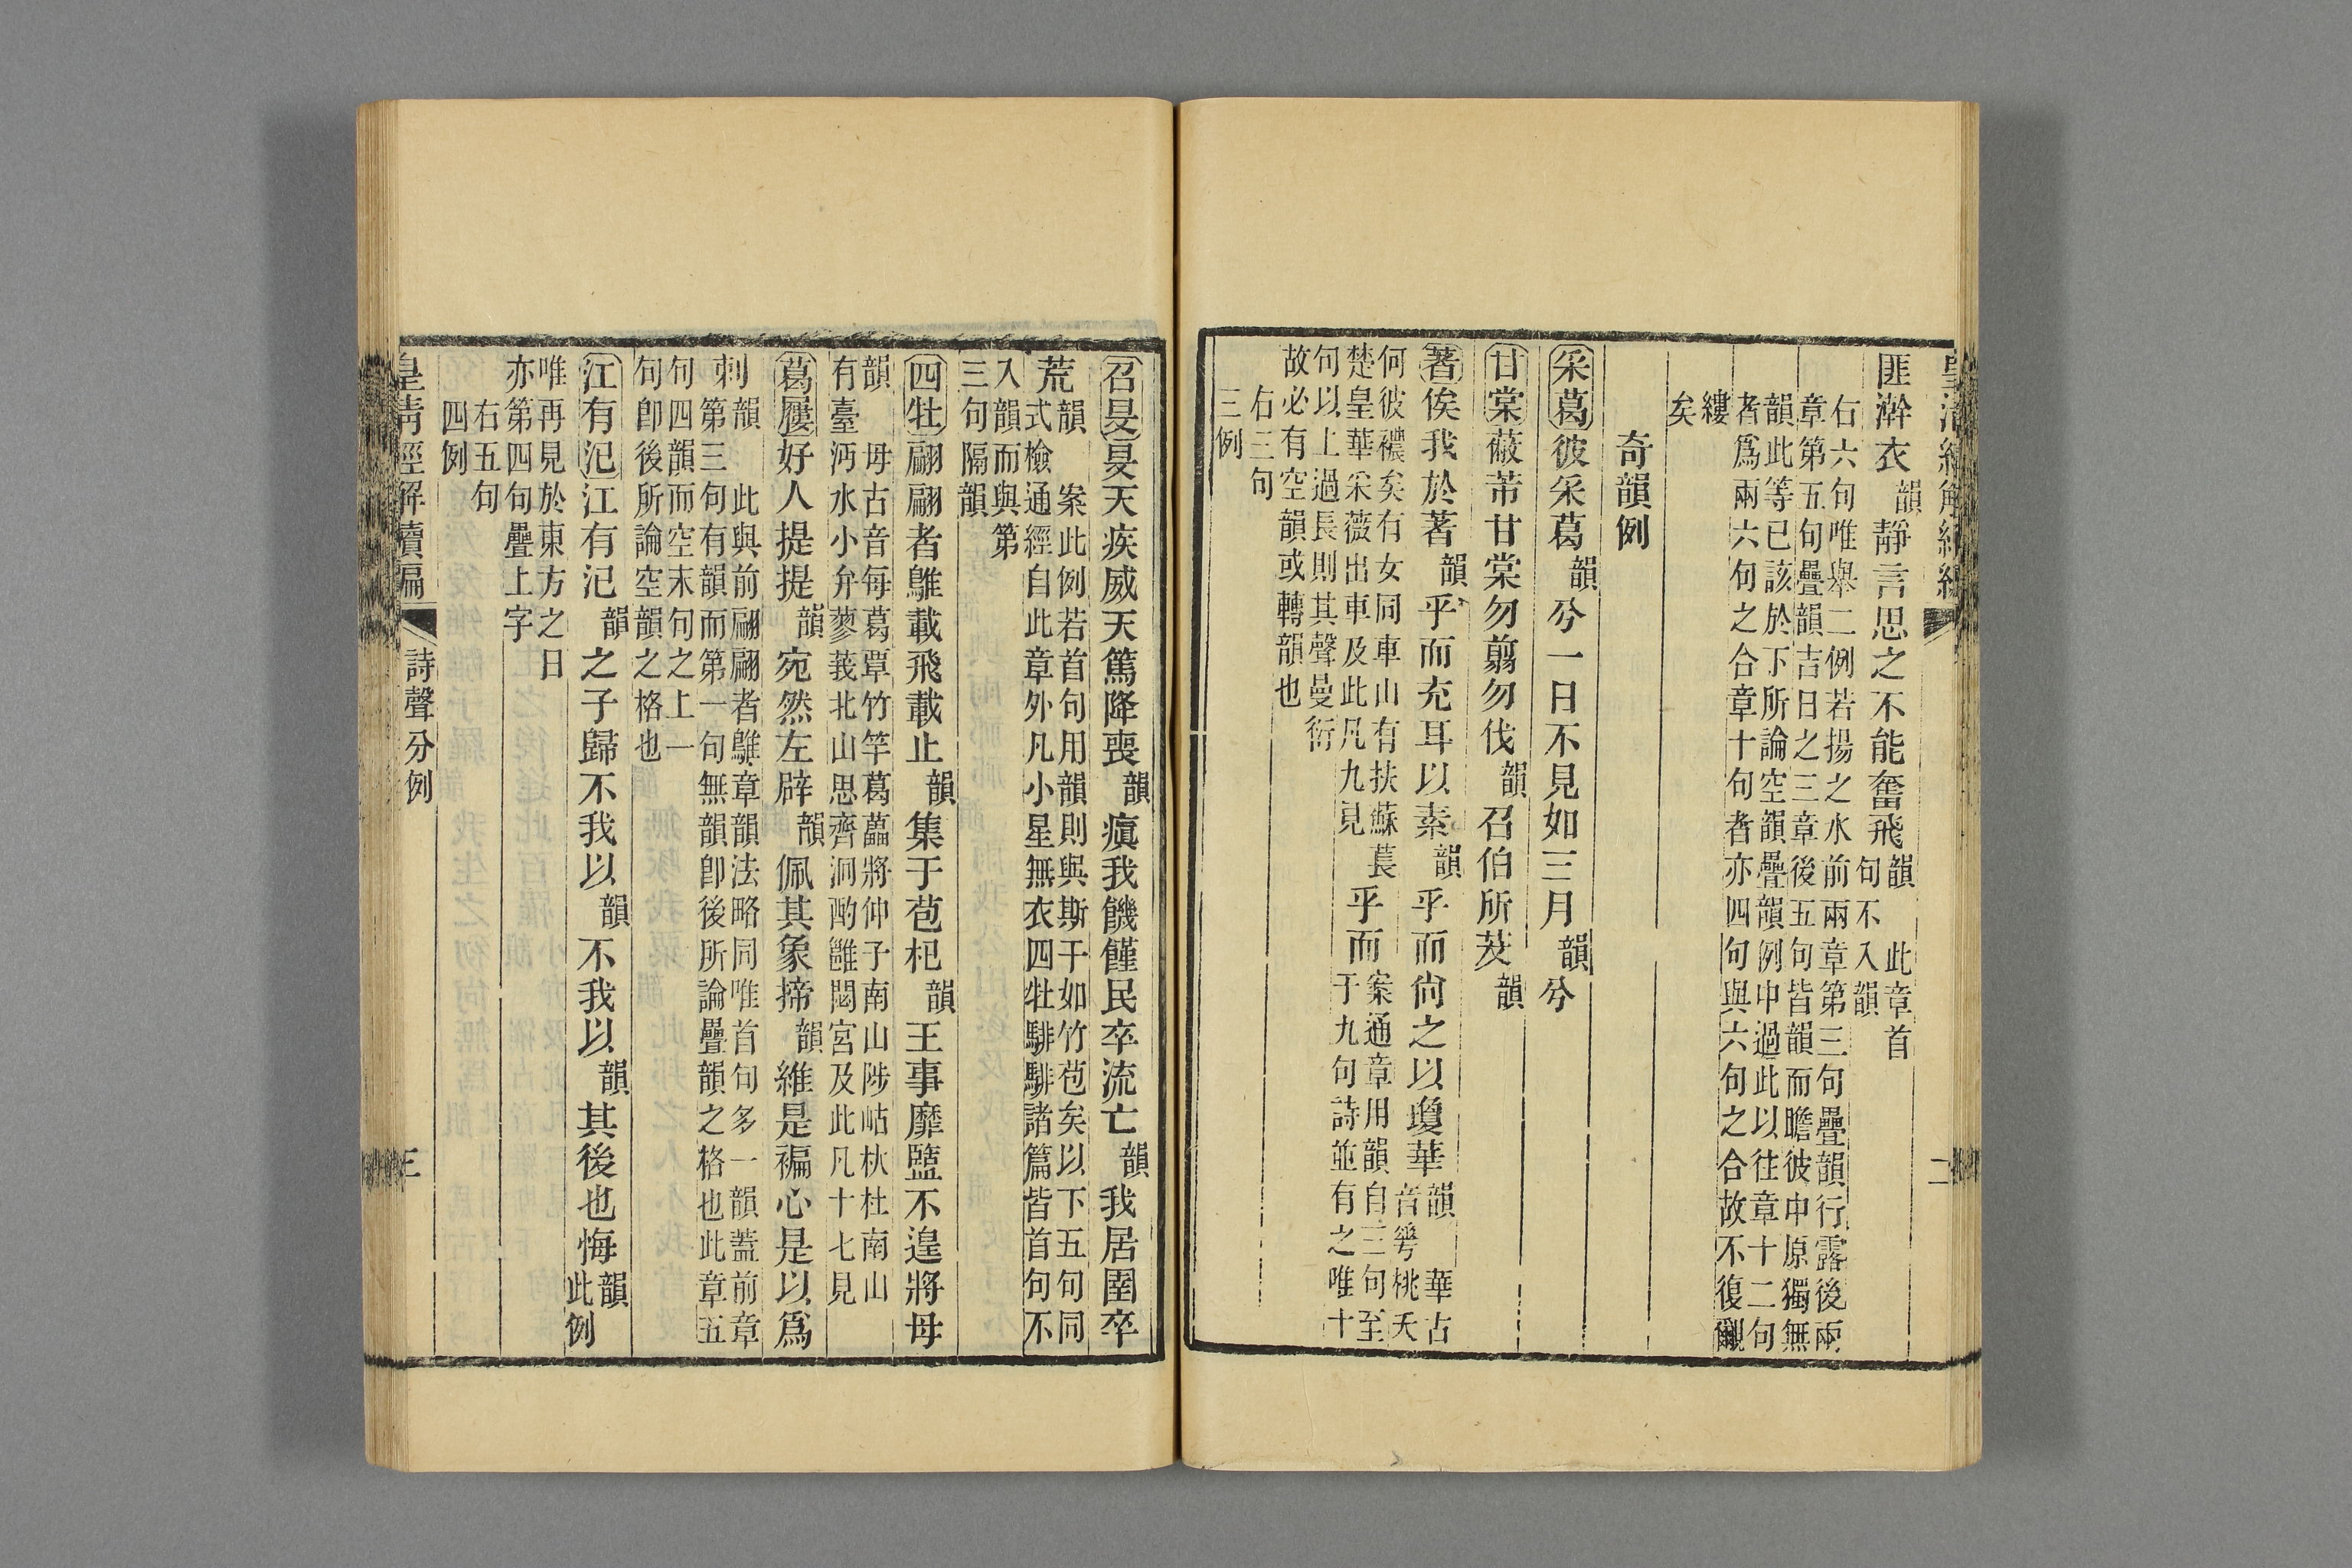 匪澣衣韻靜言思之不能奮飛韻 此章首句不入韻
右六句唯舉二例若揚之水前兩章第三句疊韻行露後兩
章第五句疊韻吉日之三章後五句皆韻而瞻彼中原獨無
韻此等已該於下所論空韻疊韻例中過此以往章十二句
者爲兩六句之合章十句者亦四句與六句之合故不復覼
縷
矣
奇韻例
采葛彼采葛韻兮一日不見如三月韻兮
甘棠蔽芾甘棠勿翦勿伐韻召伯所茇韻
著俟我於著韻乎而充耳以素韻乎而尚之以瓊華韻 華古音𠌶桃夭
何彼襛矣有女同車山有扶蘇萇
楚皇華采薇出車及此凡九見
乎而 案通章用韻自三句至
于九句詩並有之唯十
句以上過長則其聲曼衍
故必有空韻或轉韻也
右三句
三例
召旻旻天疾威天篤降喪韻瘨我饑饉民卒流亡韻我居圉卒
荒韻 案此例若首句用韻則與斯干如竹苞矣以下五句同
式檢通經自此章外凡小星無衣四牡騑騑諸篇皆首句不
入韻而與第
三句隔韻
四牡翩翩者鵻載飛載止韻集于苞杞韻王事靡盬不遑將母
韻 母古音每葛覃竹竿葛藟將仲子南山陟岵杕杜南山
有臺沔水小弁蓼莪北山思齊泂酌雝閟宮及此凡十七見
葛屨好人提提韻宛然左辟韻佩其象揥韻維是褊心是以爲
刺韻 此與前翩翩者鵻章韻法略同唯首句多一韻蓋前章
第三句有韻而第一句無韻卽後所論疊韻之格也此章五
句四韻而空末句之上一
句卽後所論空韻之格也
江有汜江有汜韻之子歸不我以韻不我以韻其後也悔韻 此例
唯再見於東方之日
亦第四句疊上字
右五句
四例
皇淸經解續編 詩聲分例 三